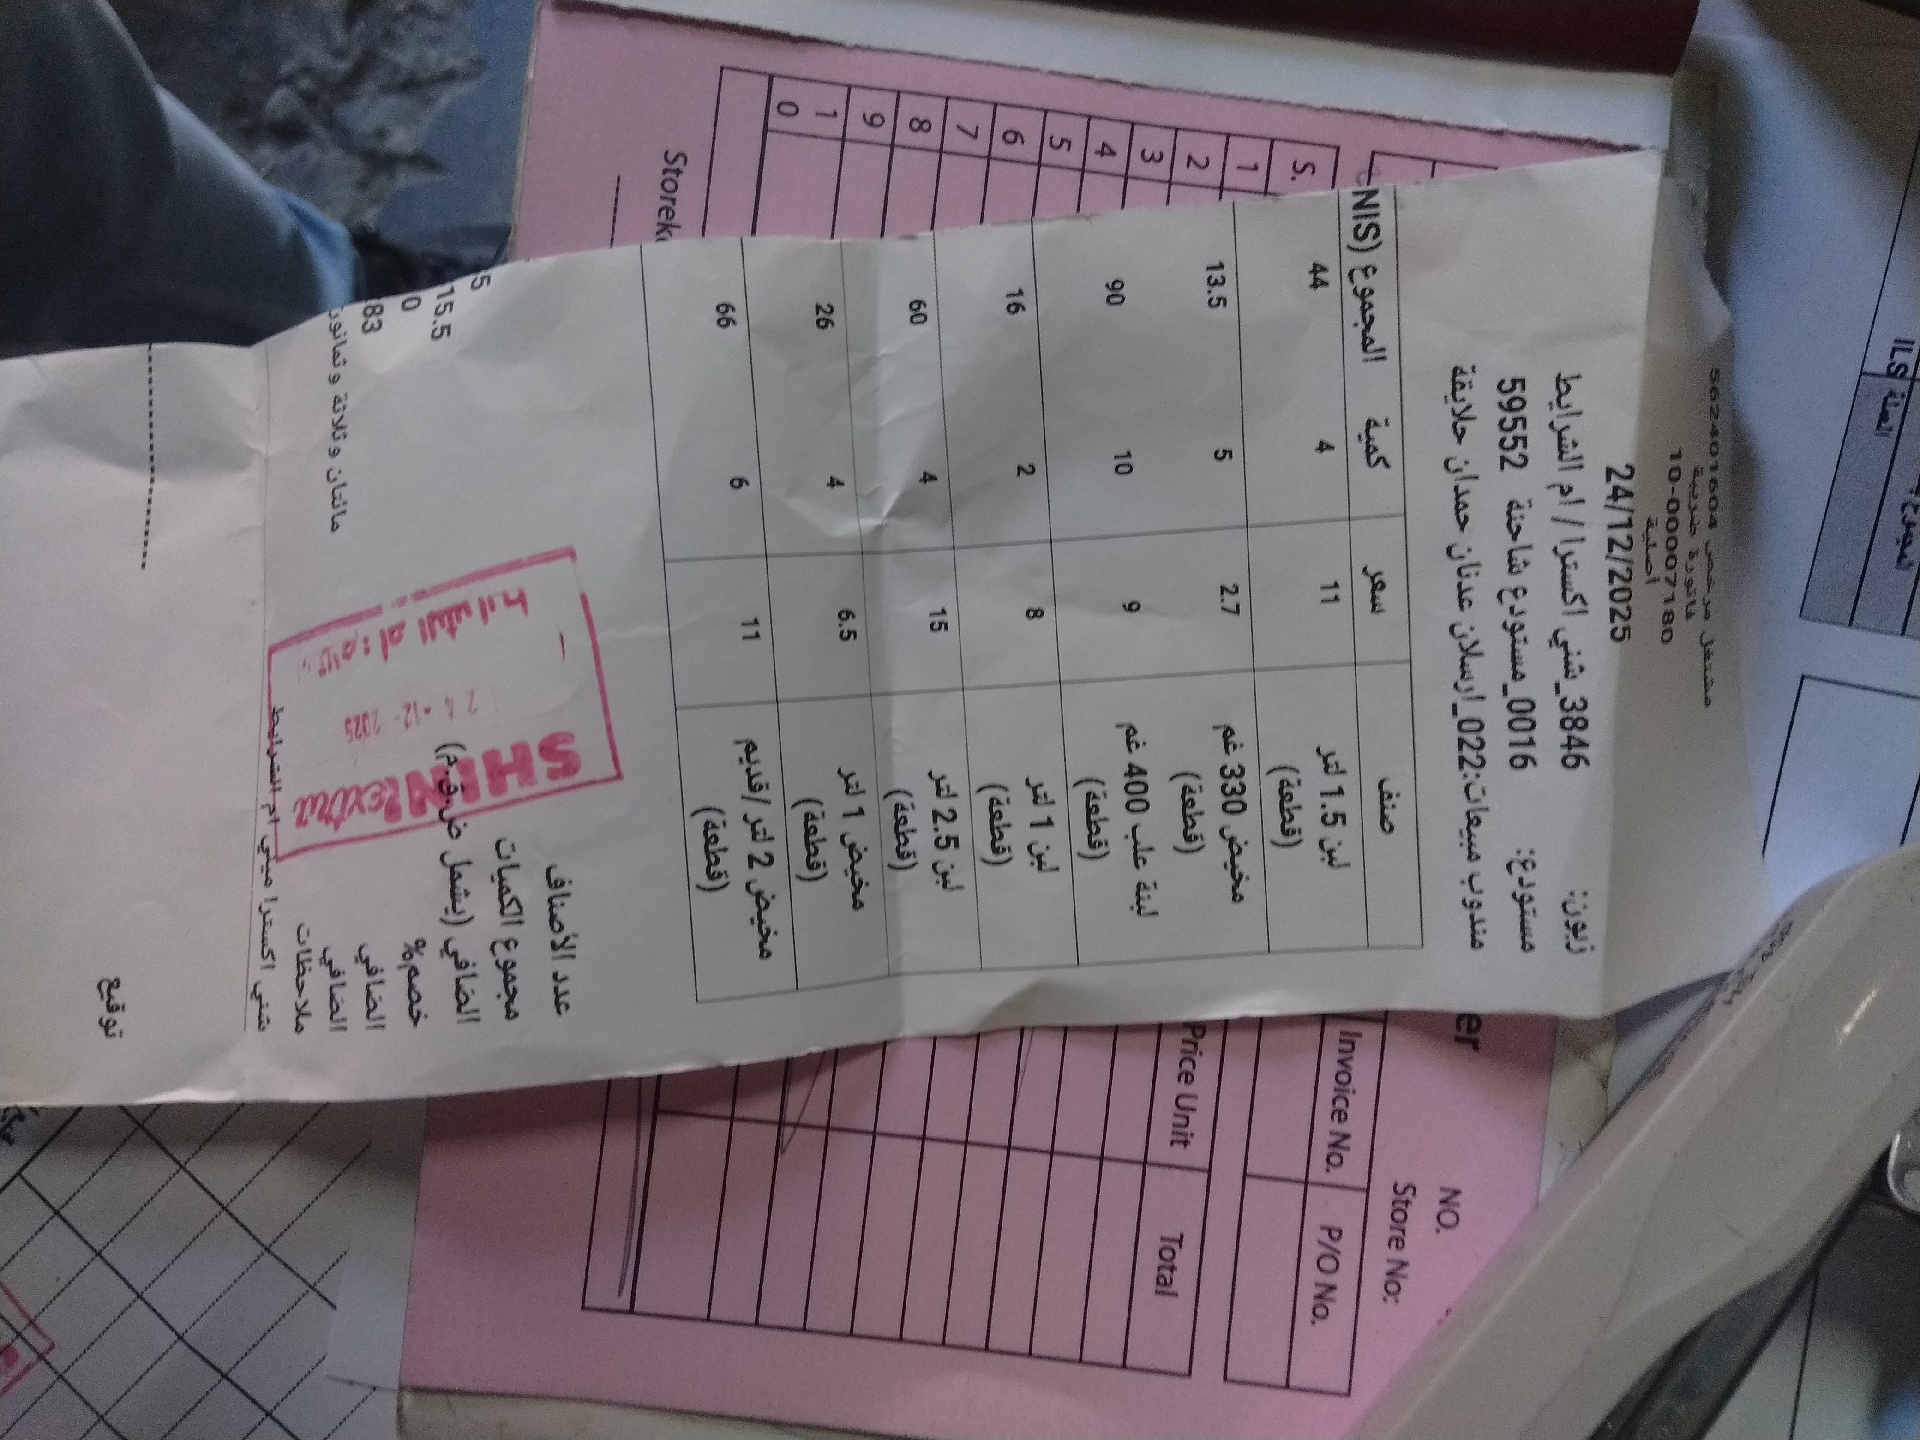 مشتغل مرخص 562401604
فاتورة ضريبية
10-00007180
أصلية
24/12/2025
زبون: 3846_شني اكسترا / ام الشرايط
مستودع: 0016_مستودع شاحنة 59552
مندوب مبيعات:022_ارسلان عدنان حمدان حلايقة
صنف سعر كمية المجموع (NIS
لبن 1.5 لتر (قطعة) 11 4 44
مخيض 330 غم (قطعة) 2.7 5 13.5
لبنة علب 400 غم (قطعة) 9 10 90
لبن 1 لتر (قطعة) 8 2 16
لبن 2.5 لتر (قطعة) 15 4 60
مخيض 1 لتر (قطعة) 6.5 4 26
مخيض 2 لتر /قديم (قطعة) 11 6 66
عدد الأصناف
مجموع الكميات 5
الصافي (يشمل ض.ق.م) 15.5
خصم% 0
الصافي 83
الصافي مائتان و ثلاثة و ثمانور
ملاحظات
شني اكسترا ميني ام الشرايط
توقيع
SHINI EXTRA
24-12-2025
er
NO.
Store No:
Invoice No. P/O No.
S. Price Unit Total
1
2
3
4
5
6
7
8
9
1
0
Storek
ILS